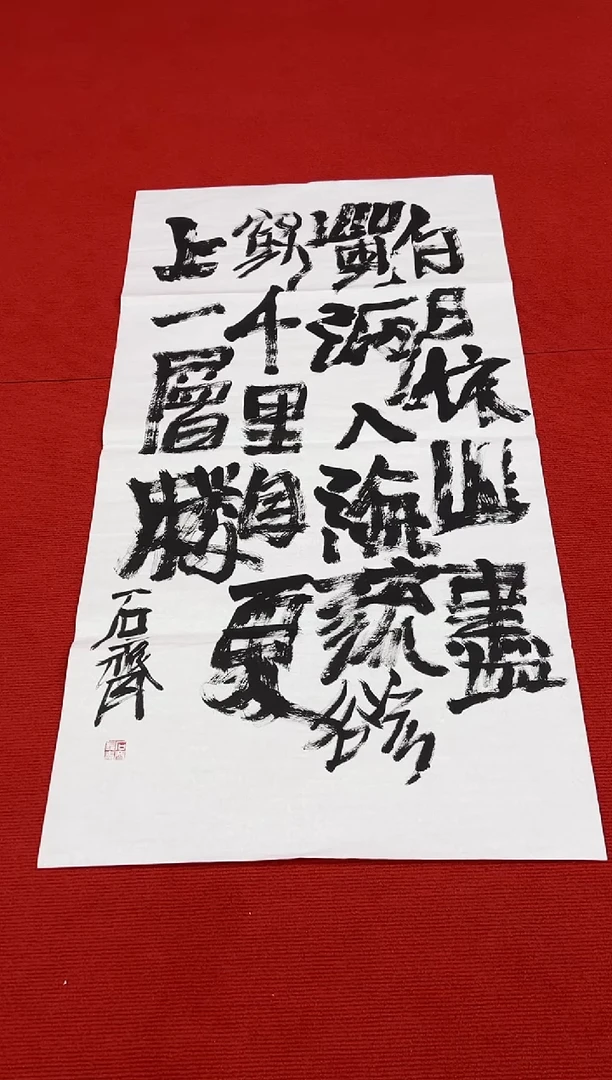 白日依山盡
黃河入海流欲
窮千里目更
上一層楼
石齊